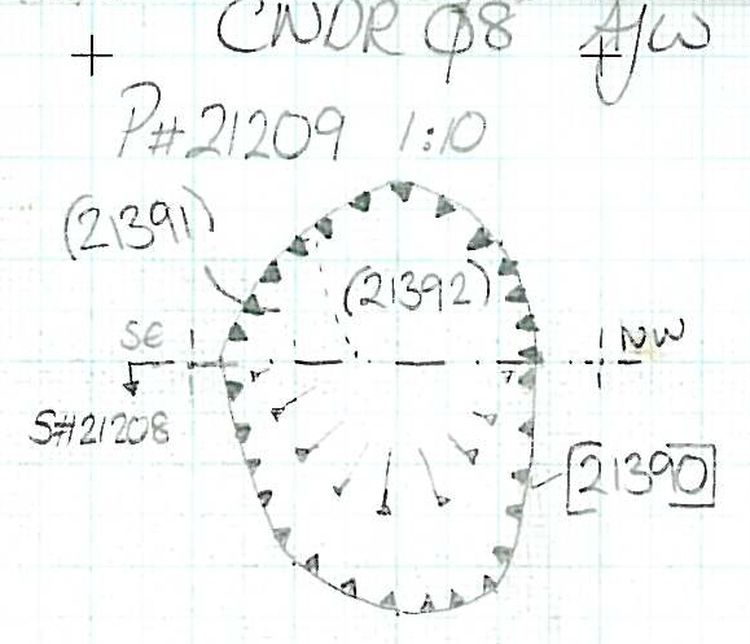 CNDR Ø8 AJW
P#21209 1:10
(21391)
(21392)
SE
NW
S#21208
[21390]